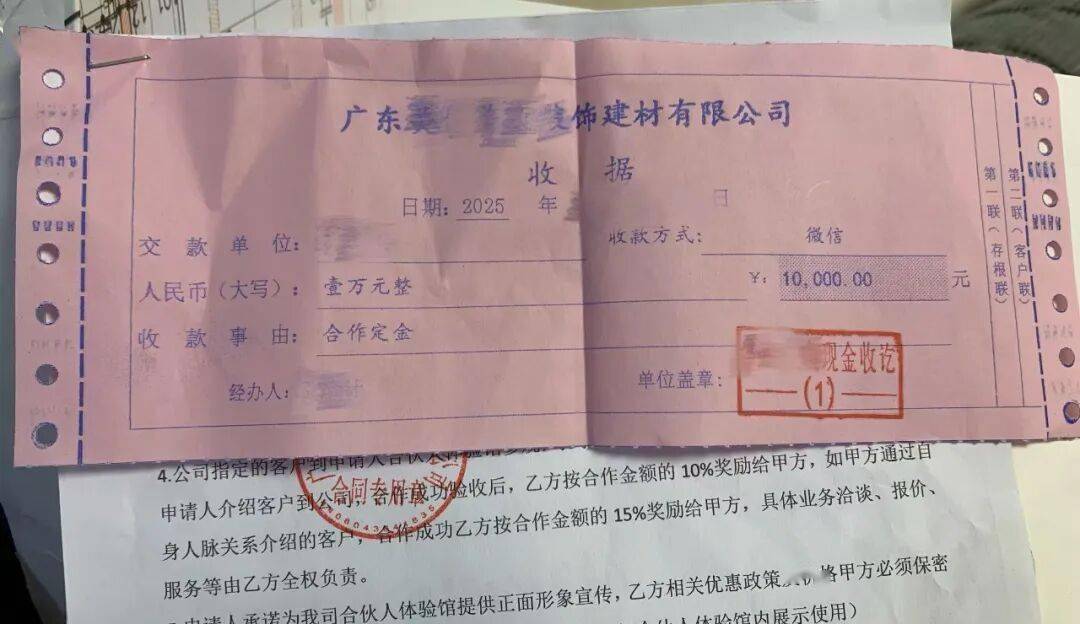 广东
饰建材有限公司
收 据
日期: 2025 年 日
交 款 单 位:
收款方式: 微信
人民币（大写）: 壹万元整
￥: 10,000.00 元
收 款 事 由: 合作定金
经办人:
单位盖章:
现金收讫
(1)
第一联（存根联）
第二联（客户联）
合同专用章
4.公司指定的客户到申请人合伙
申请人介绍客户到公司，合作成功验收后，乙方按合作金额的 10%奖励给甲方，如甲方通过自
身人脉关系介绍的客户，合作成功乙方按合作金额的 15%奖励给甲方，具体业务洽谈、报价、
服务等由乙方全权负责。
申请人承诺为我司合伙人体验馆提供正面形象宣传，乙方相关优惠政策 价格甲方必须保密
合伙人体验馆内展示使用）